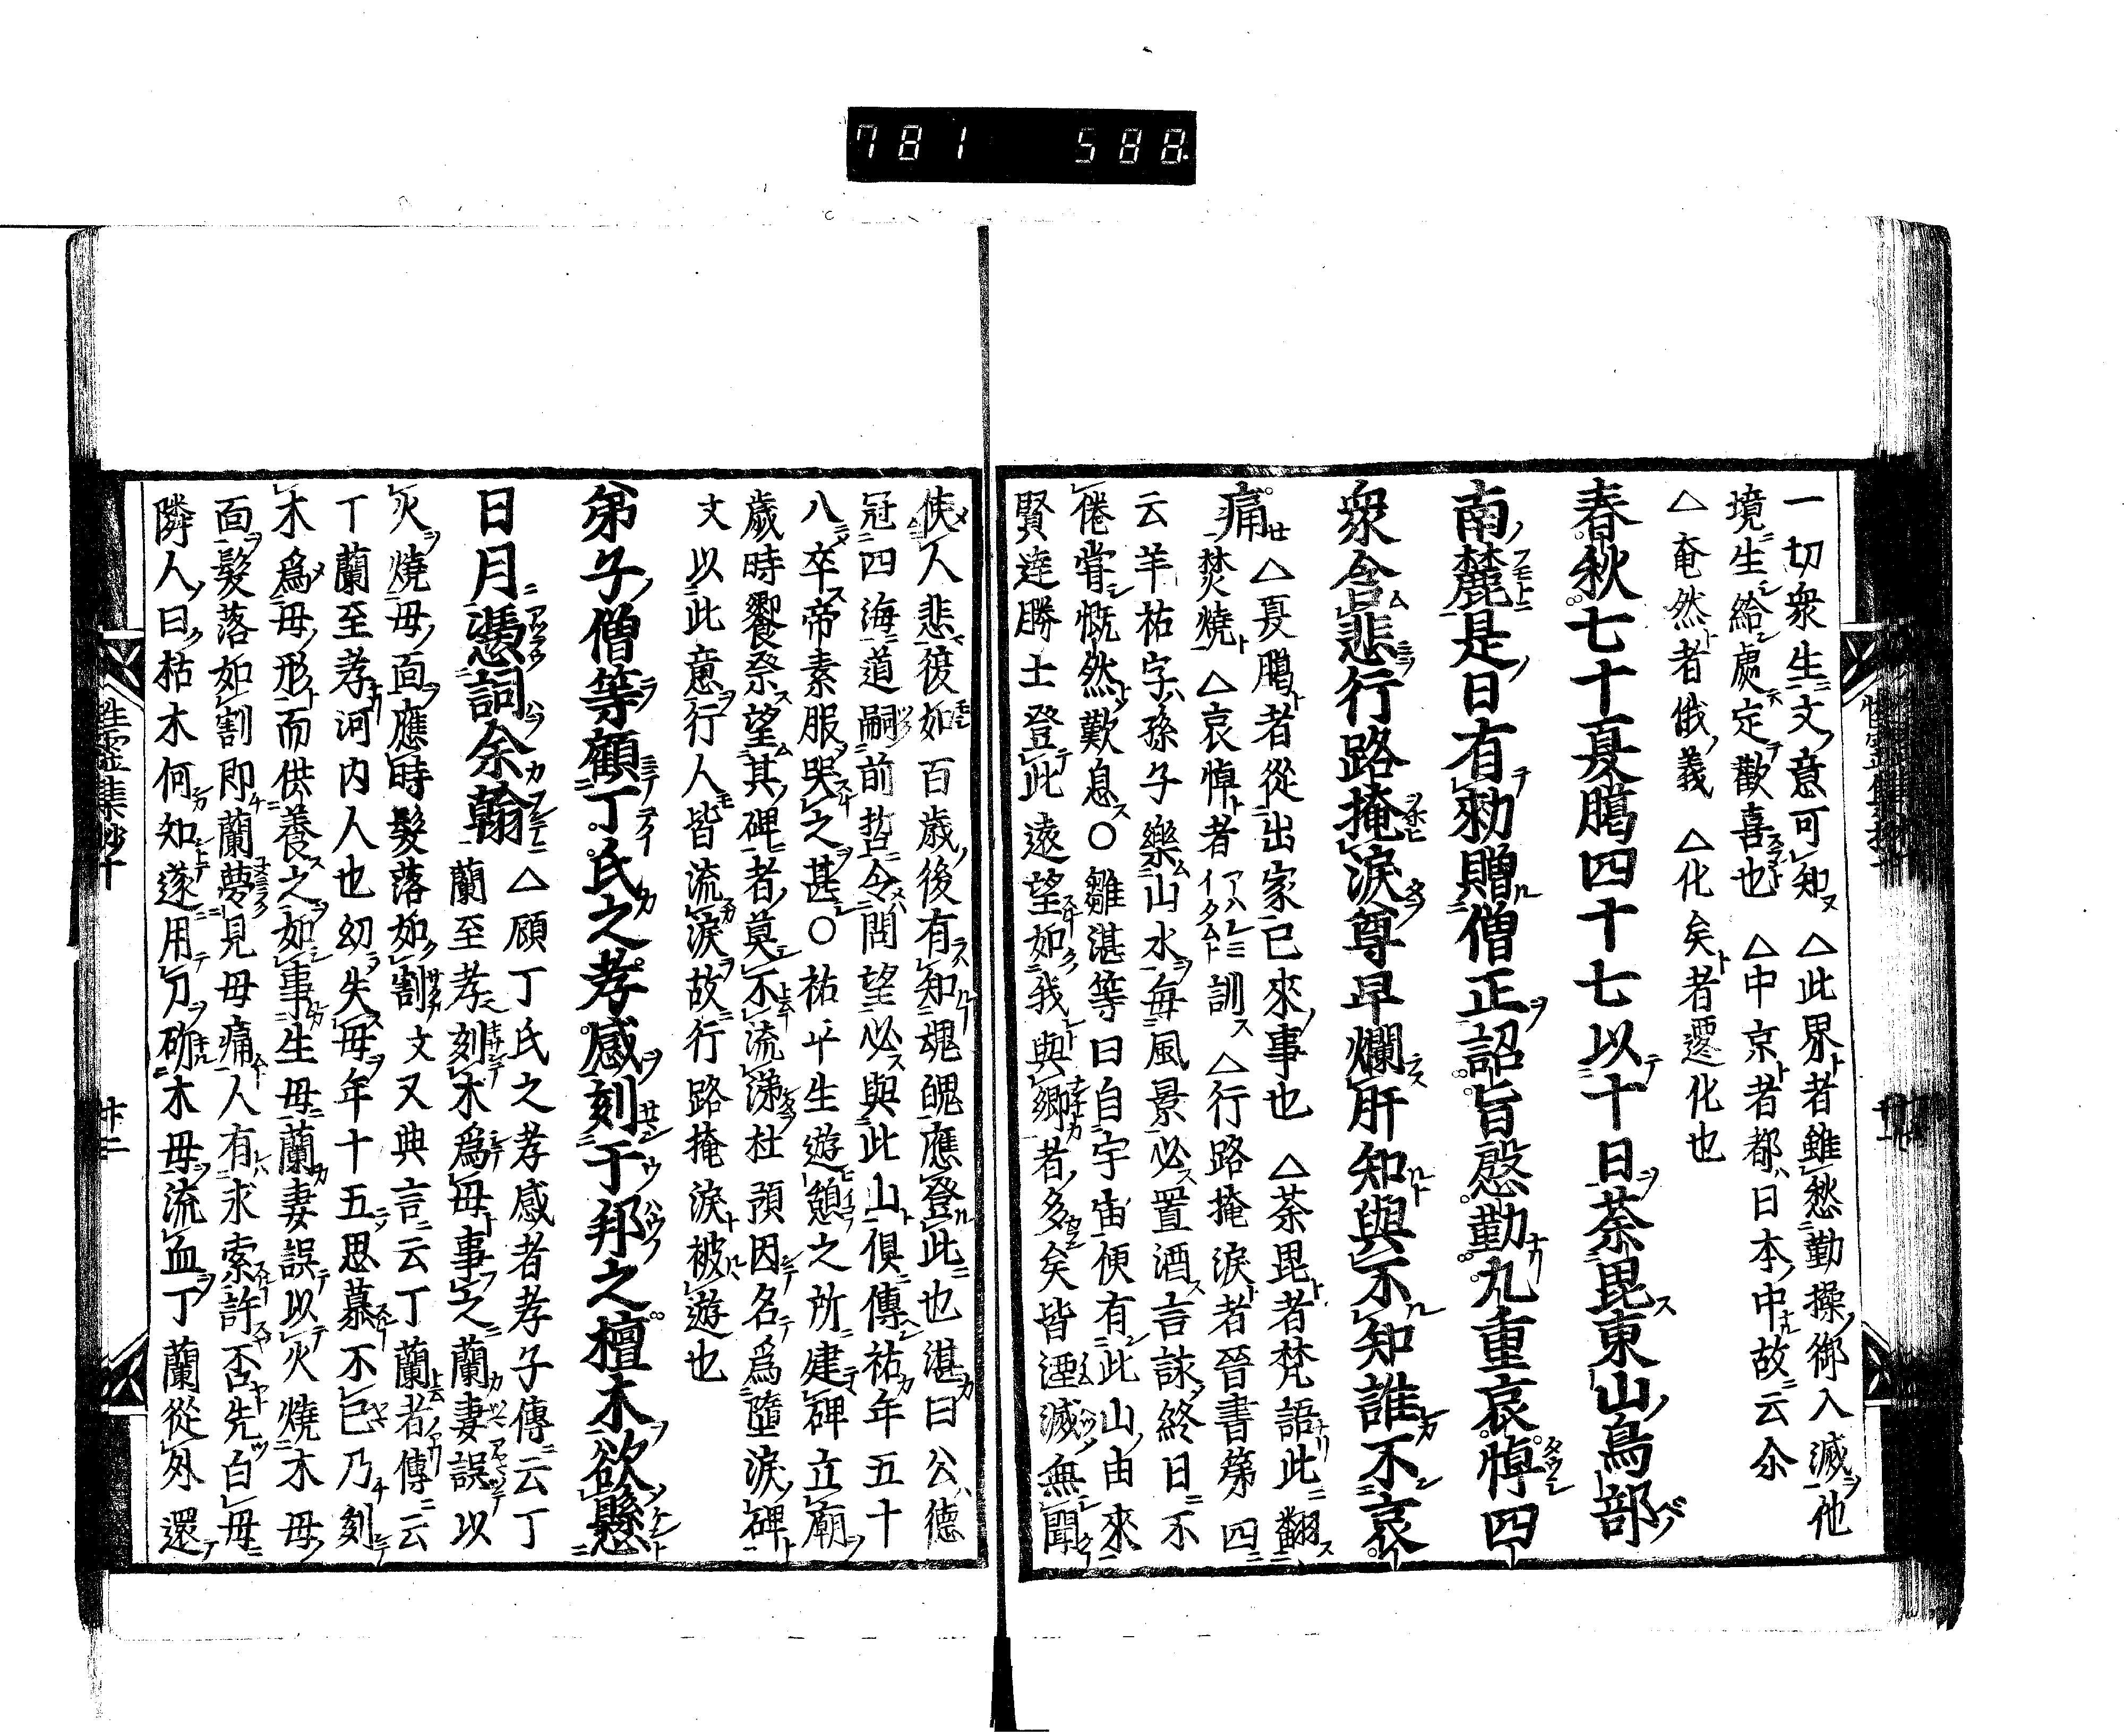 781 588
一切衆生文意可知 △此界者雖愁勤操御入滅他
境生給處定歡喜也 △中京者都日本中故云尒
△奄然者俄義 △化矣者遷化也
春秋七十夏臈四十七以十日荼毘東山鳥部
南麓是日有勅贈僧正詔旨慇勤九重哀悼四
衆含悲行路掩淚尊早爛肝知與不知誰不哀
痛 △夏臈者從出家已來事也 △荼毘者梵語此翻
焚燒 △哀悼者アハレミイタムト訓ス △行路掩淚者晉書第四
云羊祜字孫子樂山水每風景必置酒言詠終日不
倦甞慨然歎息○雛湛等曰自宇宙便有此山由來
賢達勝士登此遠望如我與卿者多矣皆湮滅無聞
使人悲彼如百歲後有知魂魄應登此也湛曰公德
冠四海道嗣前哲令問望必與此山俱傳祜年五十
八卒帝素服哭之甚○祜平生遊憩之所建碑立廟
歲時饗祭望其碑者莫不流涕杜預因名爲墮淚碑
文以此意行人皆流淚故行路掩淚被遊也
弟子僧等顧丁氏之孝感刻于邦之檀木欲懸
日月憑詞余翰 △顧丁氏之孝感者孝子傳云丁
蘭至孝刻木爲母事之蘭妻誤以
火燒母面應時髮落如割文又典言云丁蘭者傳云
丁蘭至孝河内人也幼失母年十五思慕不已乃刻
木爲母形而供養之如事生母蘭妻誤以火燒木母
面髮落如割即蘭夢見母痛人有求索許否先白母
隣人曰枯木何知遂用刀斫木母流血丁蘭從外還
性霊集鈔十
廿二